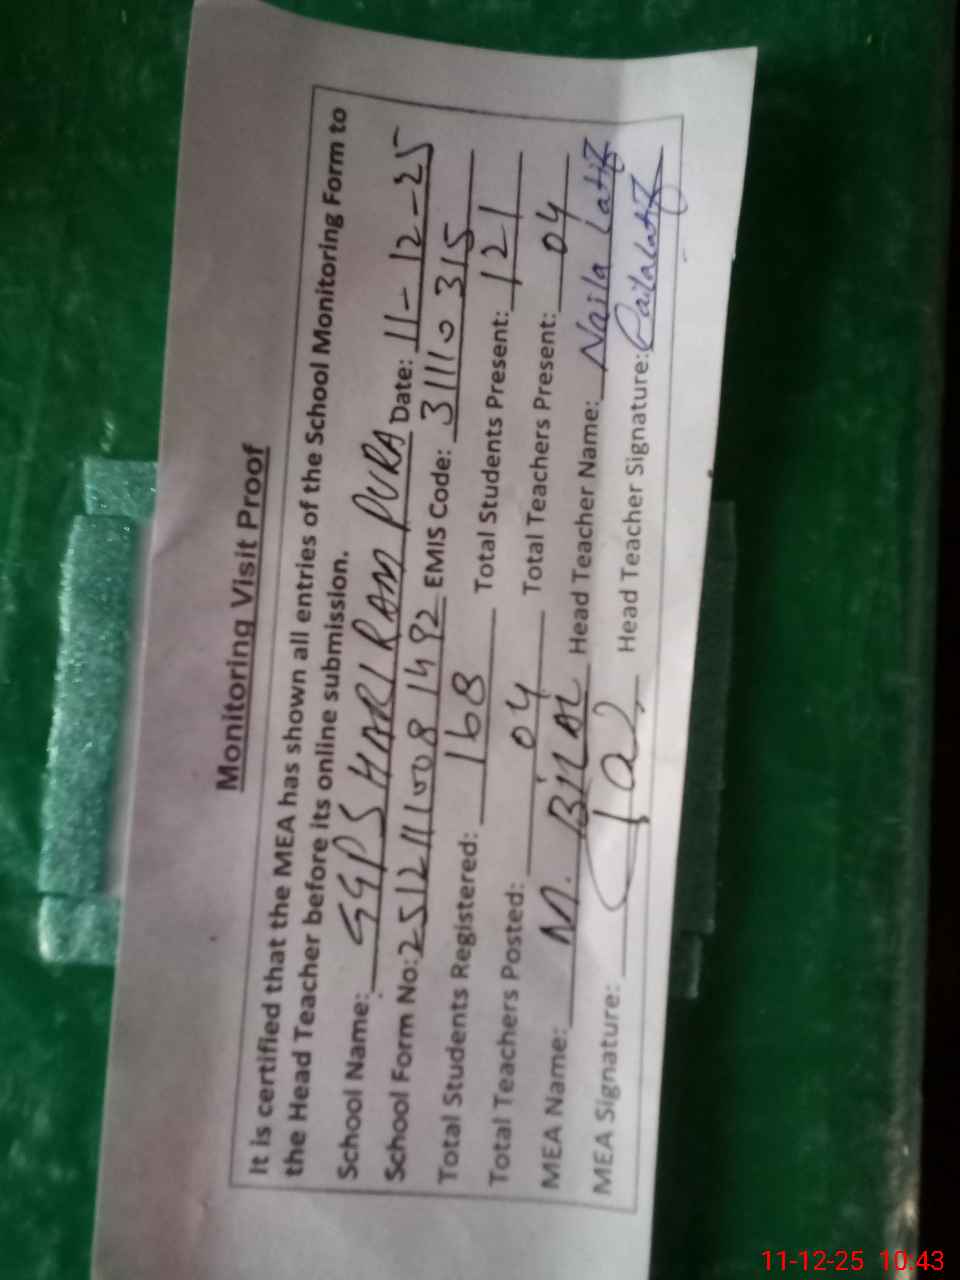 Monitoring Visit Proof
It is certified that the MEA has shown all entries of the School Monitoring Form to
the Head Teacher before its online submission.
School Name: GGPS HARI RAM PURA Date: 11-12-25
School Form No: 2512111008 1492 EMIS Code: 31110315
Total Students Registered: 168 Total Students Present: 121
Total Teachers Posted: 04 Total Teachers Present: 04
MEA Name: M. BILAL Head Teacher Name: Naila latif
MEA Signature: Head Teacher Signature:
11-12-25 10:43